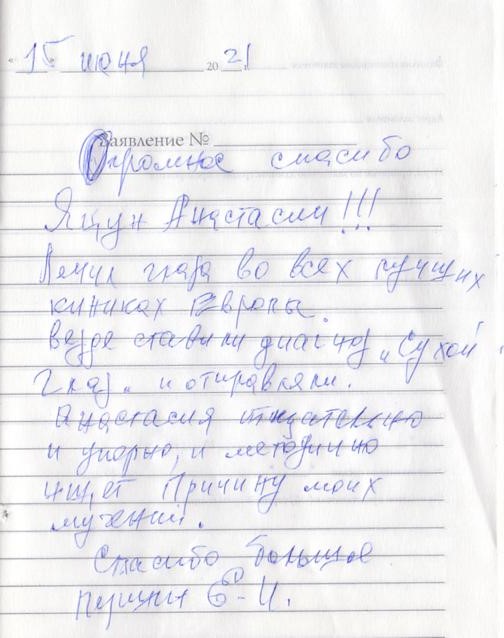 15 июня 2021
Заявление №
Огромное спасибо
Яцун Анастасии!!!
Лечил глаза во всех лучших
киниках Европы.
везде ставили диагноз „Сухой
глаз" и отправляли.
Анастасия тщательно
и упорно, и методично
ищет Причину моих
мучений.
Спасибо большое